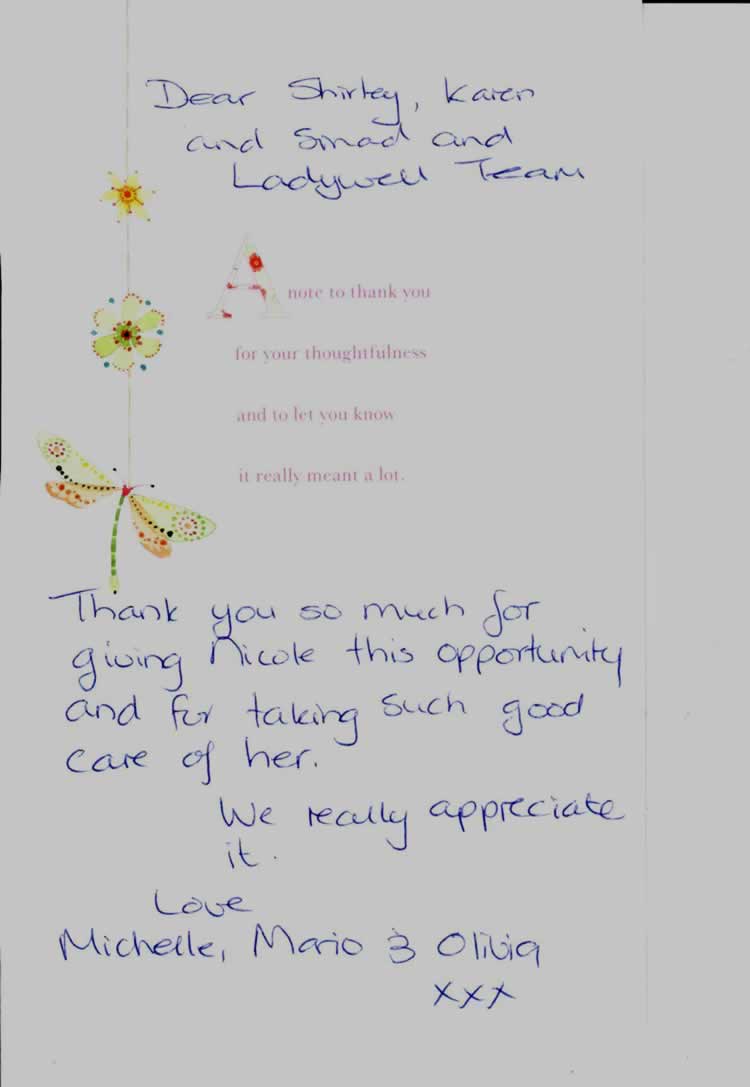 Dear Shirley, Karen
and Sinad and
Ladywell Team
A note to thank you
for your thoughtfulness
and to let you know
it really meant a lot.
Thank you so much for
giving Nicole this opportunity
and for taking such good
care of her.
We really appreciate
it.
Love
Michelle, Mario & Olivia
xxx